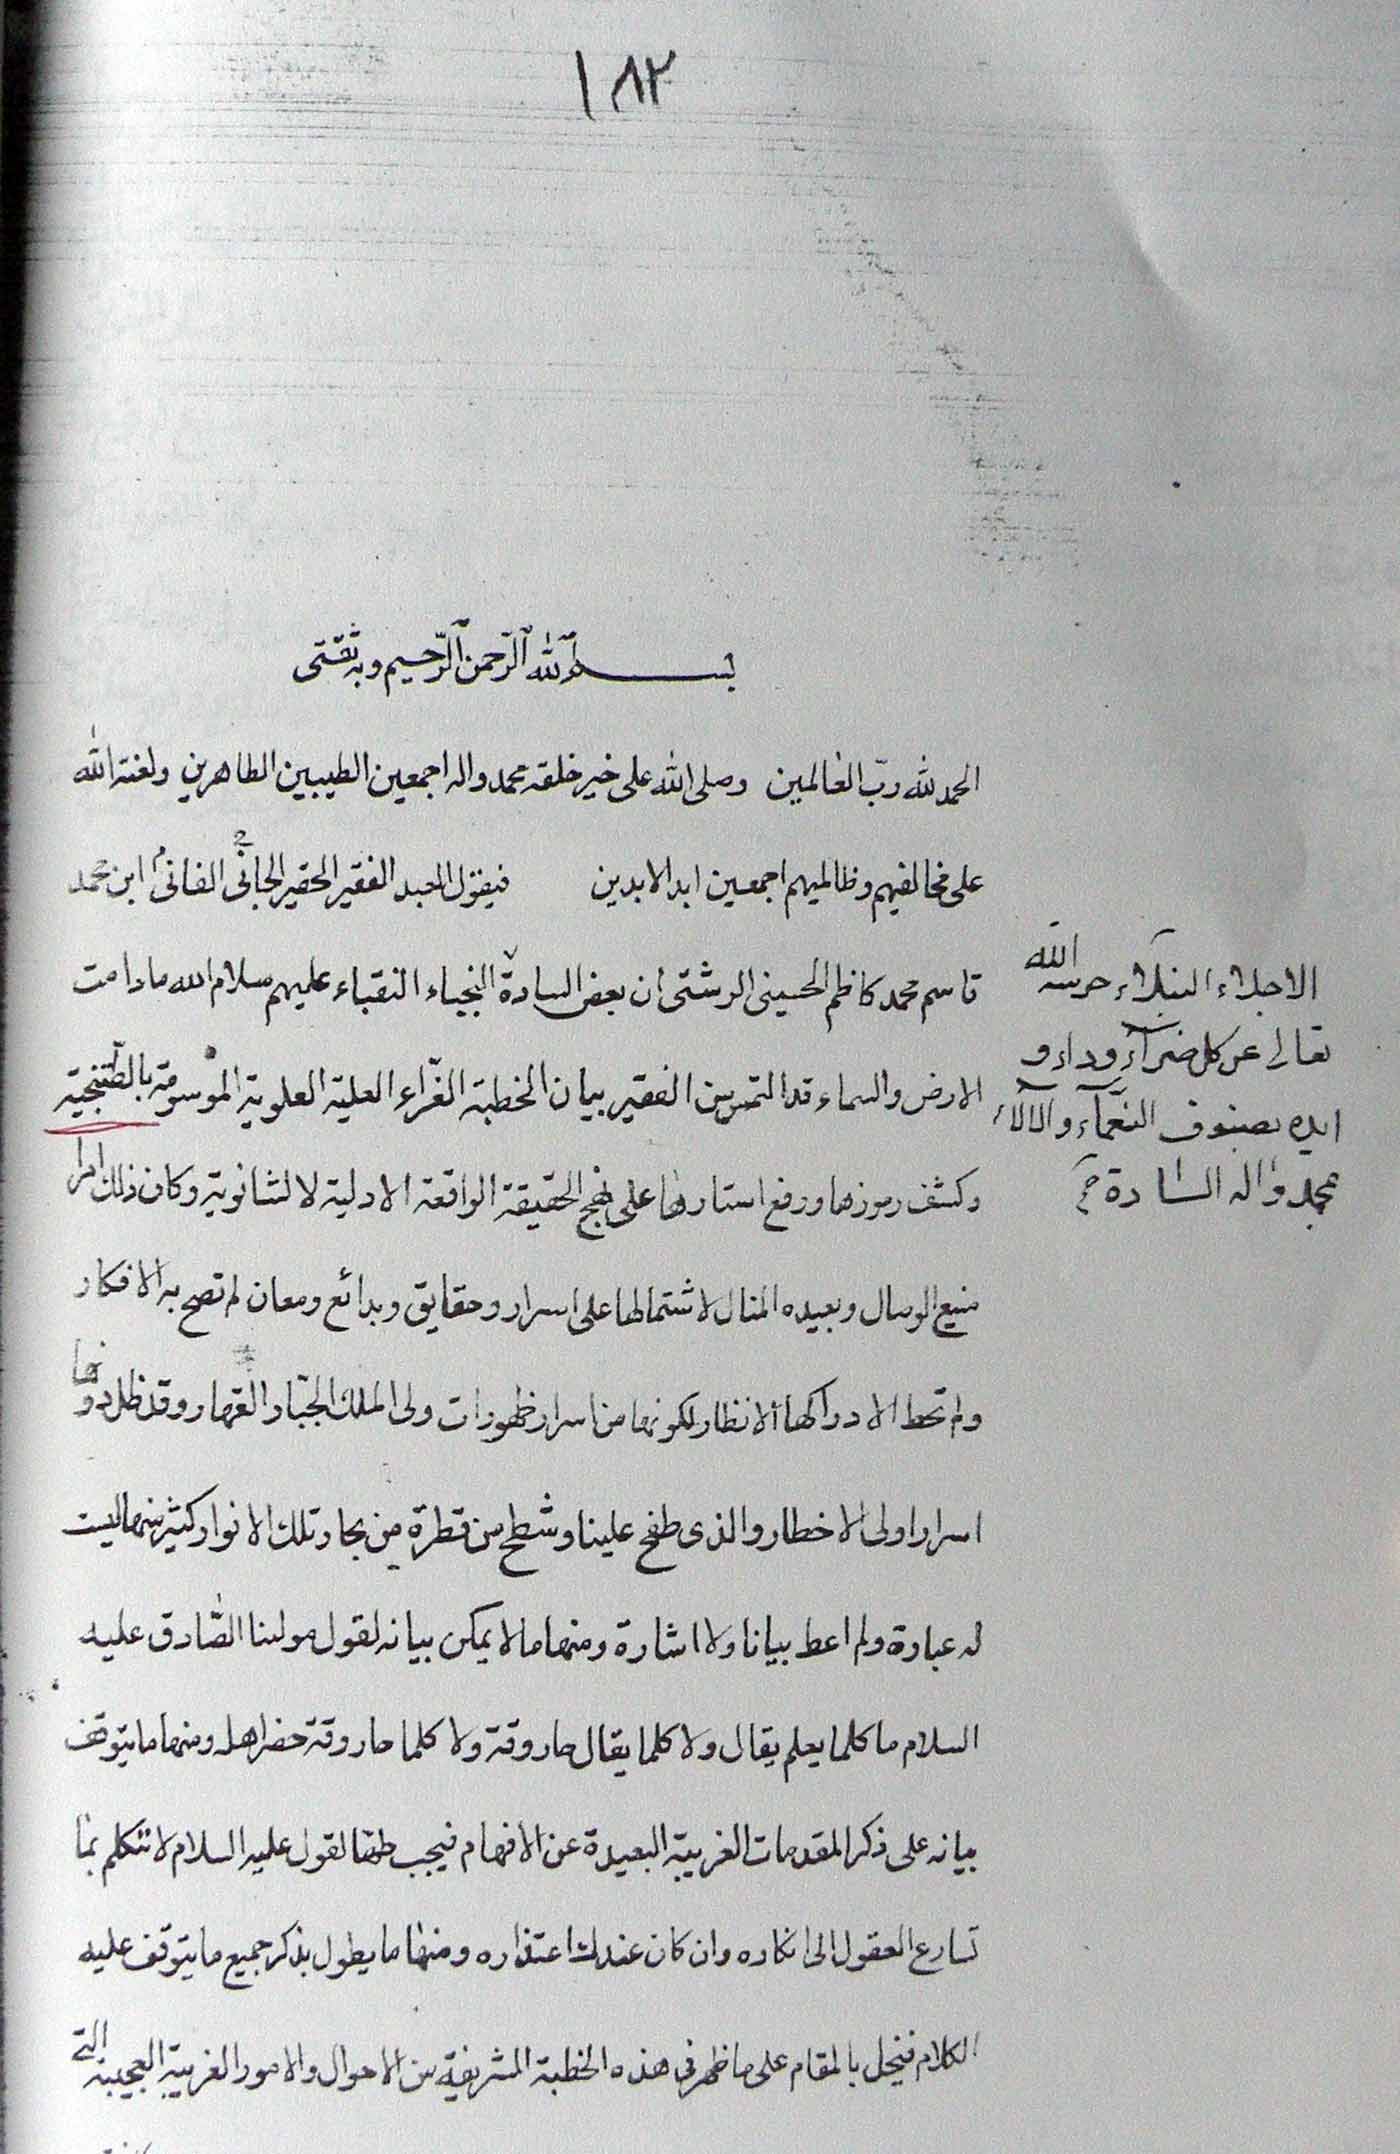 ١٨٢
بسم الله الرحمن الرحيم وبه ثقتى
الحمد لله ربّ العالمين وصلى الله على خير خلقه محمد واله اجمعين الطيبين الطاهرين ولعنة الله
على مخالفيهم وظالميهم اجمعين ابد الابدين فيقول العبد الفقير الحقير الجانى الفانى ابن محمد
قاسم محمد كاظم الحسينى الرشتى ان بعض السادة النجباء النقباء عليهم سلام الله ما دامت
الارض والسماء قد التمس من الفقير بيان الخطبة الغرّاء العلية العلوية الموسومة بالطتنجية
وكشف رموزها ورفع استارها على نهج الحقيقة الواقعة الاولية لا الثانوية وكان ذلك امرا
منيع الوصال وبعيده المنال لاشتمالها على اسرار وحقايق وبدائع ومعان لم تصح به الافكار
ولم تحط الادراكها الانظار لكونها من اسرار ظهورات ولى الملك الجبّار القهار وقد ظل دونها
اسرار اولى الاخطار والذى طفح علينا وشطح من قطرة من بحار تلك الانوار كثير منها ليست
له عبارة ولم اعط بيانا ولا اشارة ومنها ما لا يمكن بيانه لقول مولينا الصّادق عليه
السلام ما كلما يعلم يقال ولا كلما يقال حان وقته ولا كلما حان وقته حضر اهله ومنها ما يتوقف
بيانه على ذكر المقدمات الغريبة البعيدة عن الافهام فيجب طيها لقول عليه السلام لا تتكلم بما
تسارع العقول الى انكاره وان كان عندك اعتذاره ومنها ما يطول بذكر جميع ما يتوقف عليه
الكلام فيخل بالمقام على ما ظهر فى هذه الخطبة الشريفة من الاحوال والامور الغريبة العجيبة التى
الاجلاء النبلاء حرسه الله
تعالى عن كل ضرآء وداء و
ايده بصنوف النعمآء والالآء
بمحمد واله السادة